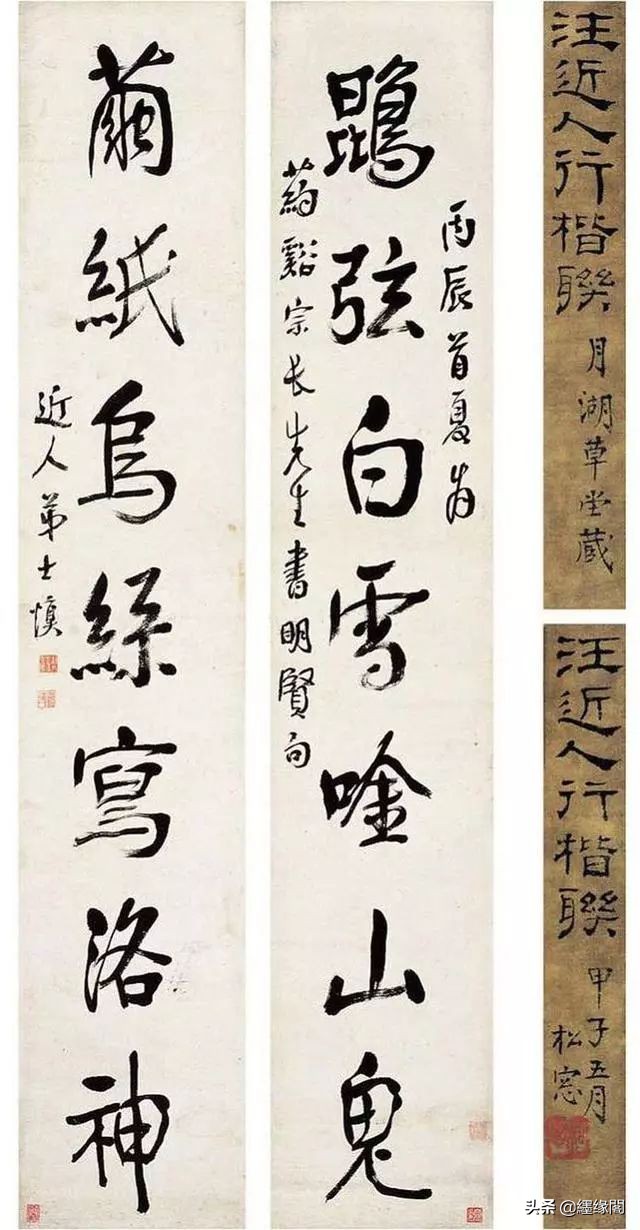 鵾弦白雪唫山鬼
丙辰首夏為
葯谿宗長先生書明賢句
繭紙烏絲寫洛神
近人弟士慎
汪近人行楷聯
月湖草堂藏
汪近人行楷聯
甲子五月
松窓
头条 @纆缘閣